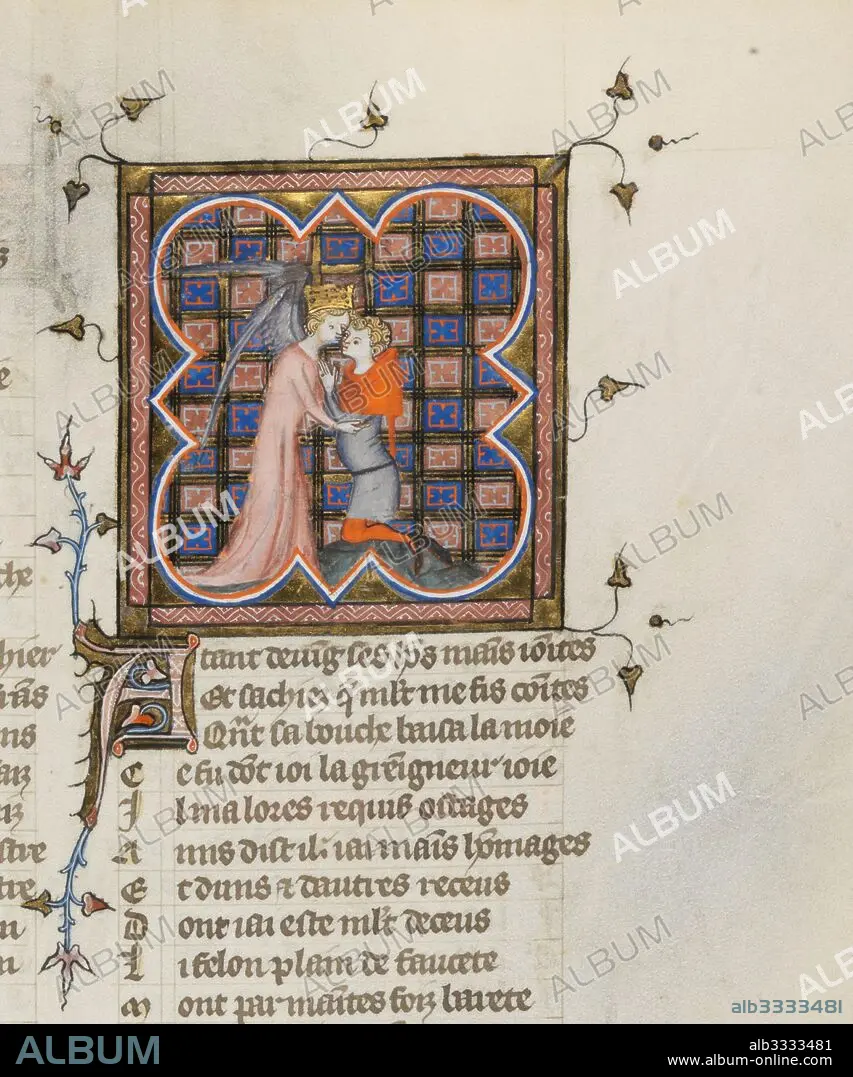 che
hier
stre
tre
Atant deuīg ses hōs mains ioītes
Et sachiez q̄ ml̄t me fis cōītes
Qñt sa bouche baisa la moie
Ce fu dōt ioi la greīgneur ioie
Il ma lores requis ostages
Amis dist il. iai maīs hōmages
Et duns & dautres receus
Dont iai este ml̄t deceus
Li felon plain de faucete
Mont par maītes foiz barete
ALBUM
alb3333481
alb3333481
www.album-online.com